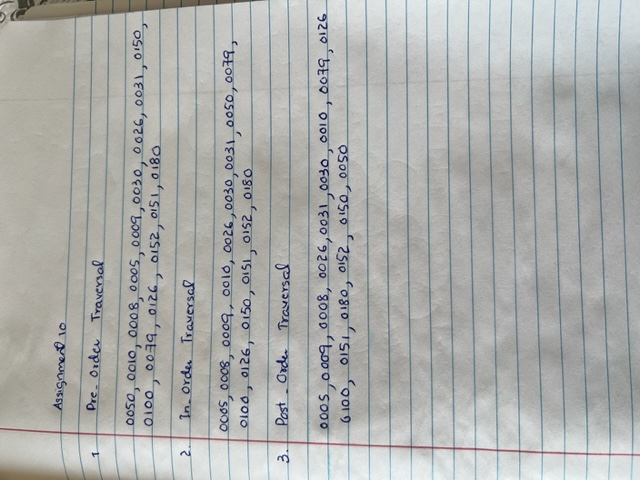 Assignment 10
1 Pre-Order Traversal
0050, 0010, 0008, 0005, 0009, 0030, 0026, 0031, 0150,
0100, 0079, 0126, 0152, 0151, 0180
2. In-Order Traversal
0005, 0008, 0009, 0010, 0026, 0030, 0031, 0050, 0079,
0100, 0126, 0150, 0151, 0152, 0180
3. Post-Order Traversal
0005, 0009, 0008, 0026, 0031, 0030, 0010, 0079, 0126
0100, 0151, 0180, 0152, 0150, 0050